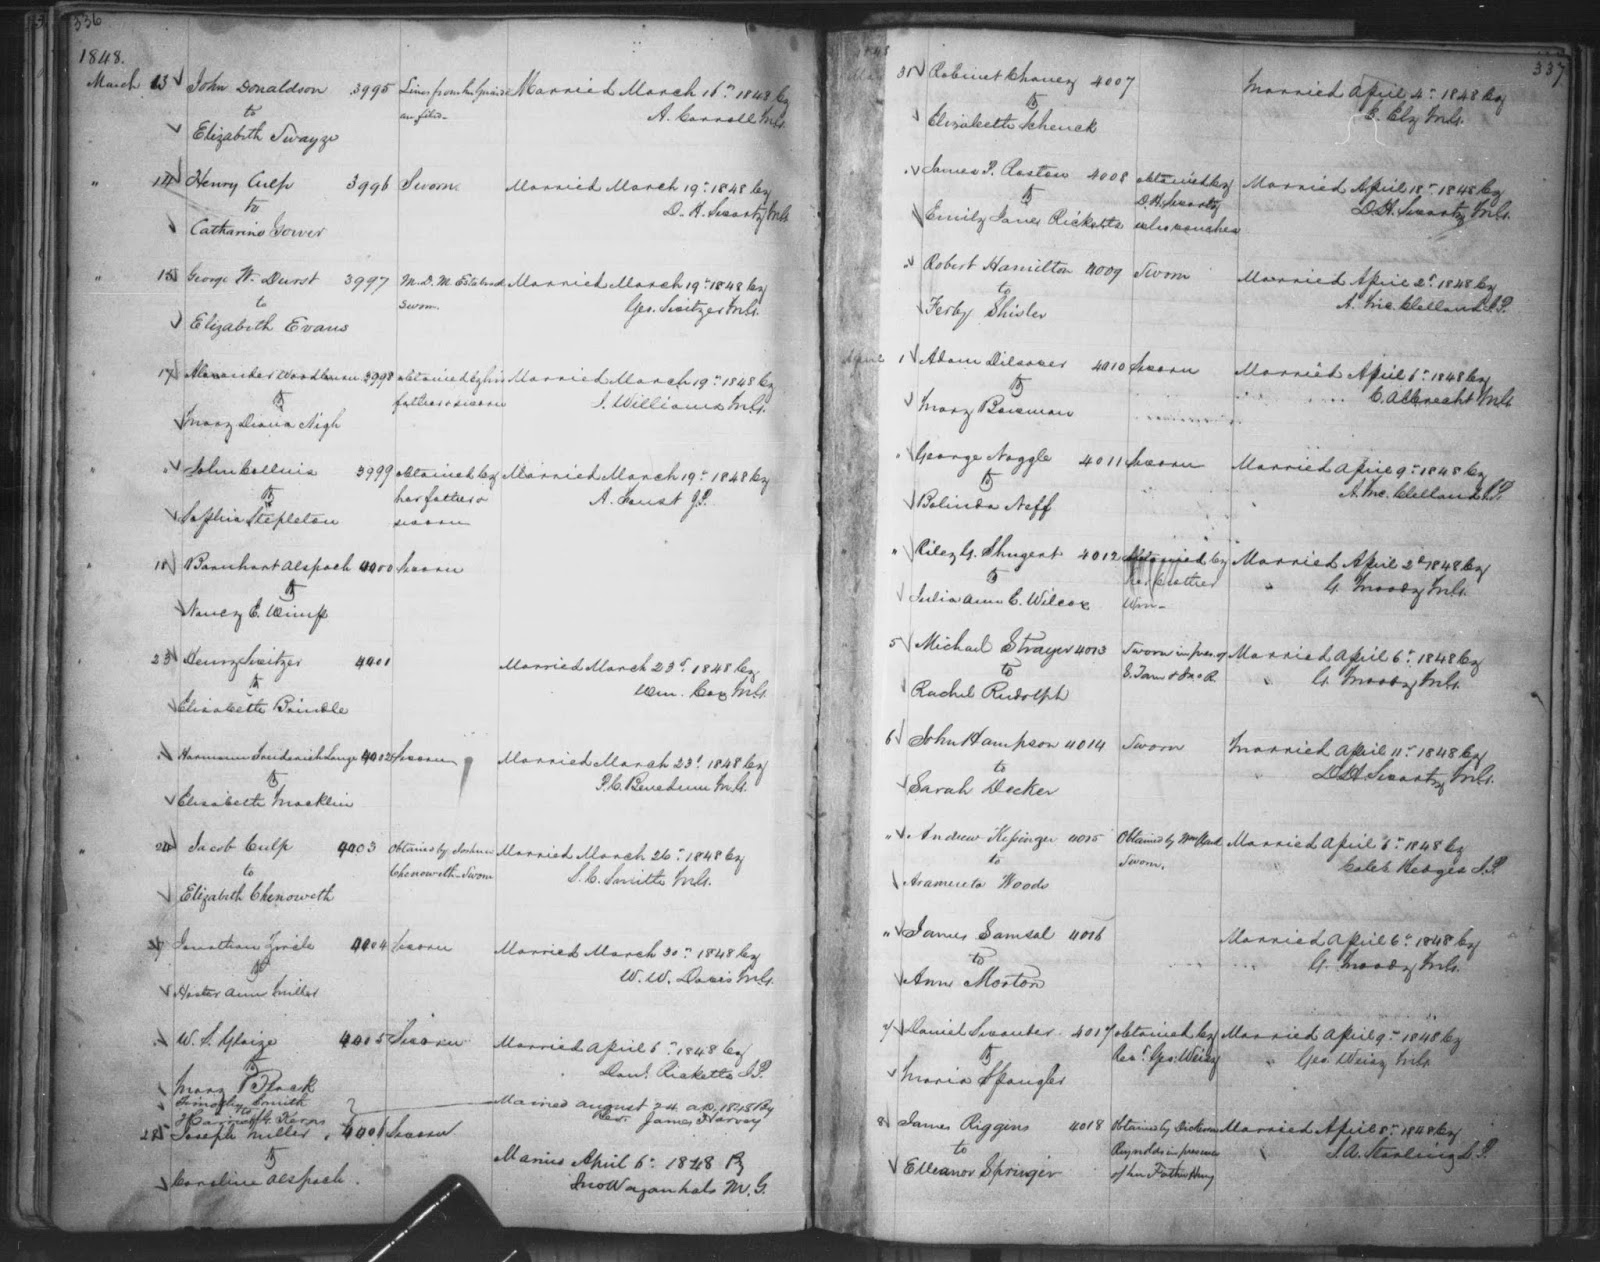 336
1848.
March 13 John Donaldson 3995 Married March 16th 1848 by
to A. Carroll M.G.
Elizabeth Swayze
" 14 Henry Culp 3996 Sworn Married March 19th 1848 by
to D. H. Swartz M.G.
Catharine Gower
" 15 George W. Durst 3997 Married March 19th 1848 by
to sworn. Geo. Switzer M.G.
Elizabeth Evans
17 Alexander 3998 obtained by his Married March 19th 1848 by
to father & sworn J. Williams M.G.
Mary Diana Nigh
" John Collins 3999 obtained by Married March 19th 1848 by
to her father & A. Faust J.P.
Sophia Stepleton sworn
18 Barnhart Alspach 4000 Sworn
to
Nancy E. Wimp
23 Henry Switzer 4001 Married March 23d 1848 by
to Wm. Cox M.G.
Elisabeth Brindle
" 4002 Sworn Married March 23d 1848 by
to M.G.
Elisabeth Macklin
" 24 Jacob Culp 4003 Obtained by Joshua Married March 26th 1848 by
to Chenoweth-Sworn S. C. Smith M.G.
Elizabeth Chenoweth
Jonathan 4004 Sworn Married March 30th 1848 by
to W. W. Davis M.G.
Hester Ann Miller
" W. S. Glaize 4005 Sworn Married April 6th 1848 by
to Danl. Ricketts J.P.
Mary Plack
Timothy Smith Maried August 24 A.D. 1848 By
to Rev. James Harvey
28 Joseph Miller 4006 Sworn
to Maried April 6th 1848 By
Caroline Alspach. Jno Wagenhals M.G.
337
31 Robinet Chaney 4007 Married April 4th 1848 by
to M.G.
Elizabeth Schenck
" James P. Roston 4008 obtained by Married April 18th 1848 by
to D. H. Swartz D. H. Swartz M.G.
Emily Jane Ricketts who vouches
" Robert Hamilton 4009 Sworn Married April 2d 1848 by
to A. McClelland J.P.
Ferby Shisler
April 1 Adam Dilsaver 4010 Sworn Married April 6th 1848 by
to C. Albrecht M.G.
Mary Bowman
" George Noggle 4011 Sworn Married April 9th 1848 by
to A. McClelland J.P.
Belinda Neff
" Riley G. Shugert 4012 obtained by Married April 2d 1848 by
to her brother " G. Moody M.G.
Julia Ann C. Wilcox
5 Michael Strayer 4013 Sworn in pres. of Married April 6th 1848 by
to " G. Moody M.G.
Rachel Rudolph
6 John Hampson 4014 Sworn Married April 11th 1848 by
to " D. H. Swartz M.G.
Sarah Decker
" Andrew Kefsinger 4015 Obtained by Married April 6th 1848 by
to Sworn. Caleb Hedges J.P.
Araminta Woods
" James Samsal 4016 Married April 6th 1848 by
to G. Moody M.G.
Ann Morton
7 Daniel 4017 obtained by Married April 9th 1848 by
to Revd. Geo. Weisz " Geo. Weisz M.G.
Maria Spangler
8 James Riggins 4018 Obtained by Dickerson Married April 8th 1848 by
to Reynolds in presence J. A. Sterling J.P.
Elleanor Springer of her Father